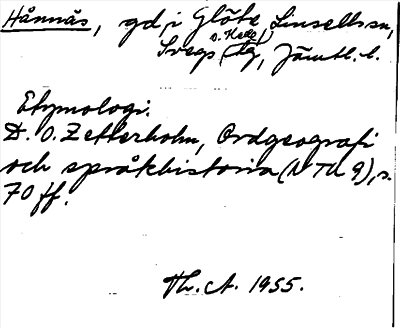 Hånnäs, gd i Glöte, Linsells sn,
Svegs o. Hede tg, Jämtl. l.
Etymologi.
D. O. Zetterholm, Ordgeografi
och språkhistoria (NTU 9), s.
70 ff.
Th. A. 1955.